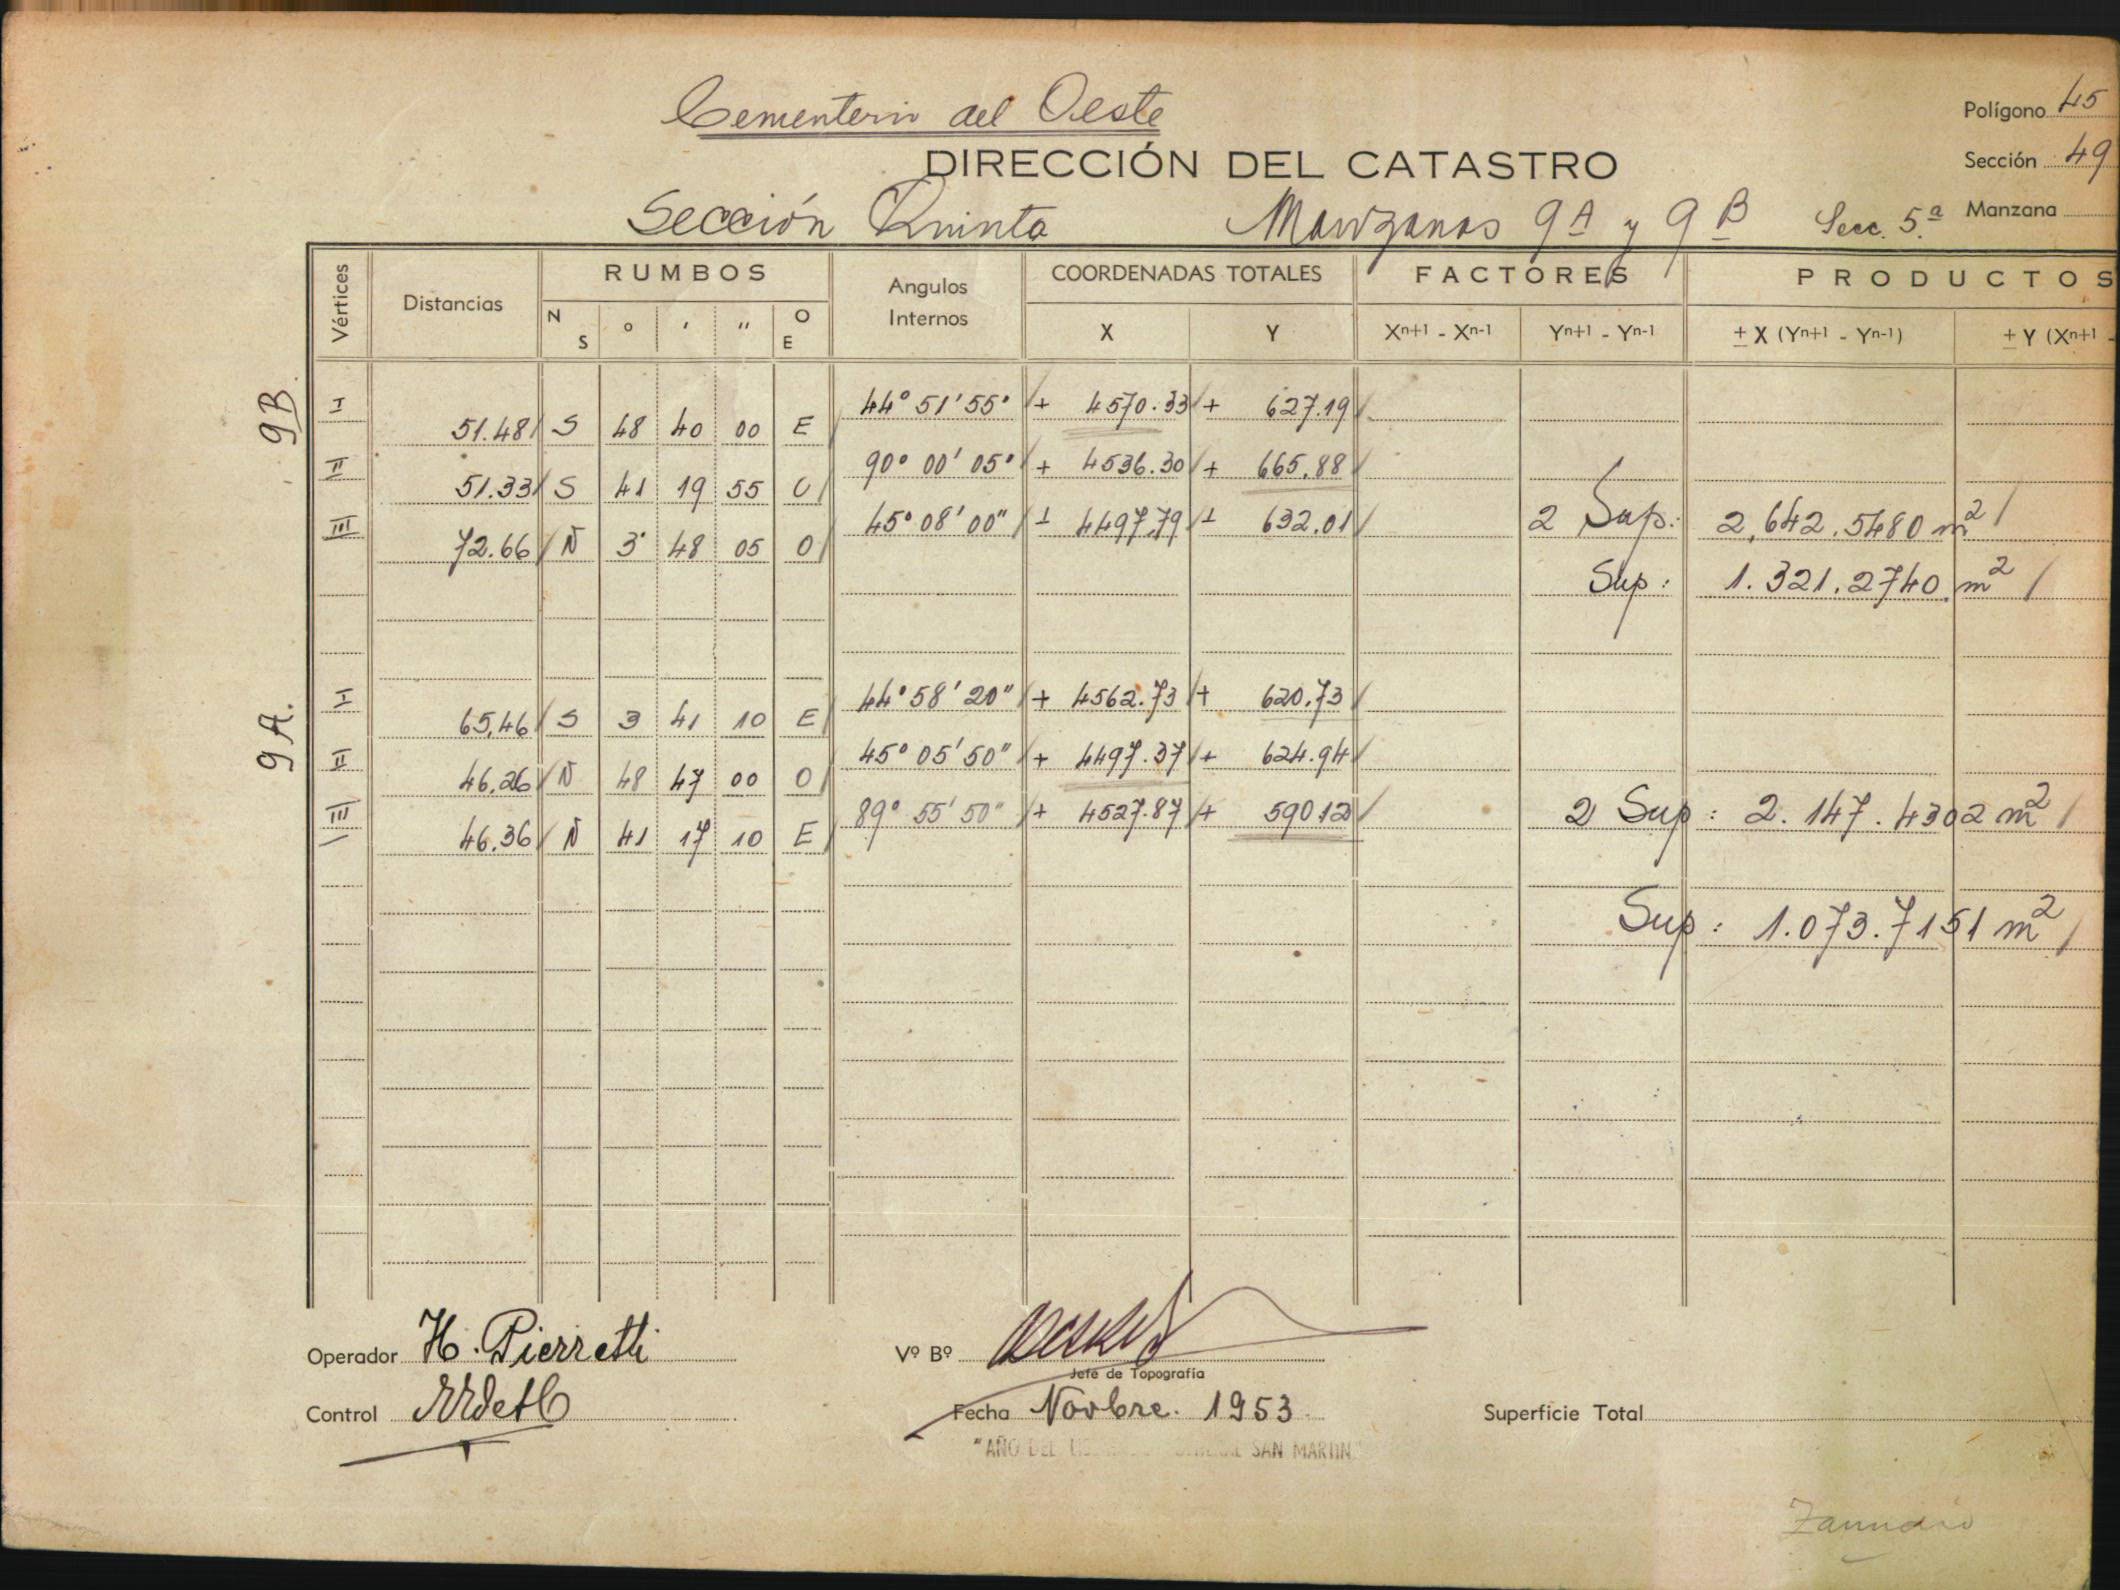 Cementerio del Oeste
Polígono 45
DIRECCIÓN DEL CATASTRO
Sección 49
Sección Quinta Manzanas 9A y 9B Secc. 5.a Manzana
Vértices Distancias RUMBOS Angulos Internos COORDENADAS TOTALES FACTORES PRODUCTOS
N S ° ' " O E X Y Xn+1 - Xn-1 Yn+1 - Yn-1 ± X (Yn+1 - Yn-1) ± Y (Xn+1 -
9B
I 44° 51' 55" + 4570.33 + 627.19
51.48 S 48 40 00 E
II 90° 00' 05" + 4536.30 + 665.88
51.33 S 41 19 55 O
III 45° 08' 00" + 4497.79 + 632.01 2 Sup.: 2.642.5480 m2
72.66 N 3 48 05 O
Sup: 1.321.2740 m2
9A.
I 44° 58' 20" + 4562.73 + 620.73
65,46 S 3 41 10 E
II 45° 05' 50" + 4497.37 + 624.94
46,26 N 48 47 00 O
III 89° 55' 50" + 4527.87 + 590 12 2 Sup: 2.147.4302 m2
46.36 N 41 17 10 E
Sup: 1.073.7151 m2
Operador H. Pierretti Vº Bº
Jefe de Topografía
Control Fecha Novbre. 1953 Superficie Total
"AÑO DEL SAN MARTIN"